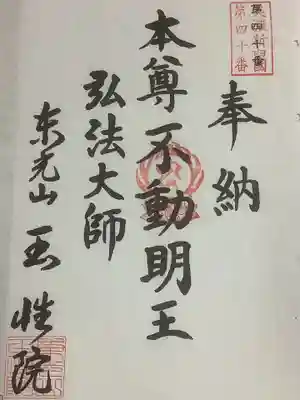 奉納
本尊不動明王
弘法大師
东光山玉性院
第四十番